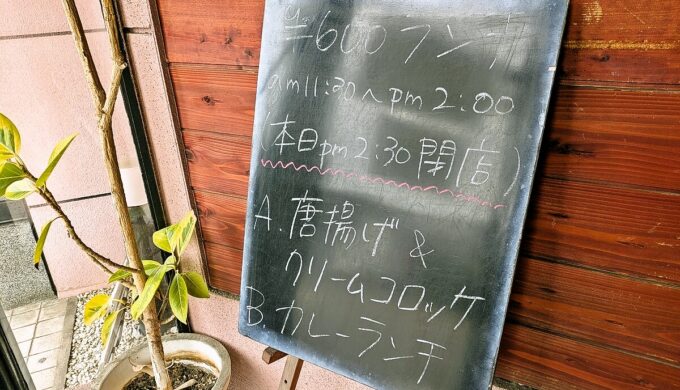 ¥600 ランチ
am11:30〜pm2:00
(本日pm2:30閉店)
A. 唐揚げ &
クリームコロッケ
B. カレーランチ